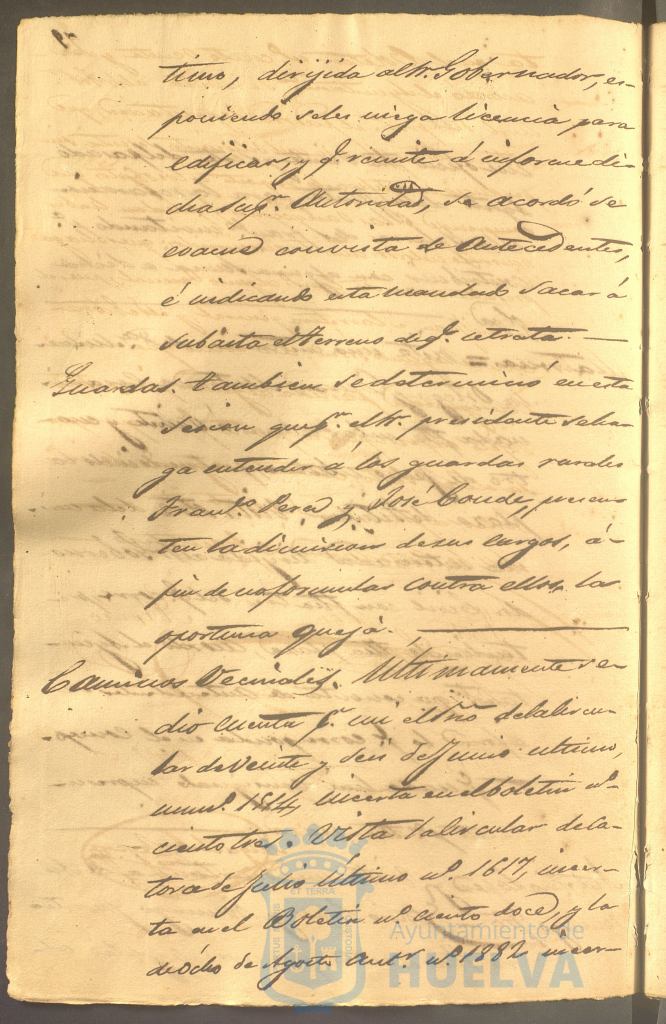 timo, dirijida al Sr. Gobernador, es-
poniendo se les niega licencia para
edificar, y q.e remite á informe di-
cha sup.r Autoridad, se acordó se
evacue con vista de Antecedentes,
é indicando esta mandado sacar á
subasta el terreno de q.e se trata. —
Guardas. Tambien se determinó en esta
sesion que p.r el Sr. presidente se ha-
ga entender á los guardas rurales
Fran.co Perez y José Conde, presen-
ten la dimision de sus cargos, á
fin de no formular contra ellos, la
oportuna queja. —
Caminos Vecinales. Ultimamente se
dio cuenta p.r mi el Srio de la circu-
lar de Veinte y seis de Junio ultimo,
num.o 1514, incerta en el boletin n.o
ciento tres. Vista la circular de Ca-
torce de Julio último n.o 1617, incer-
ta en el Boletin n.o ciento doce, y la
de Ócho de Agosto n.o 1882 incer-
Ayuntamiento de
HUELVA